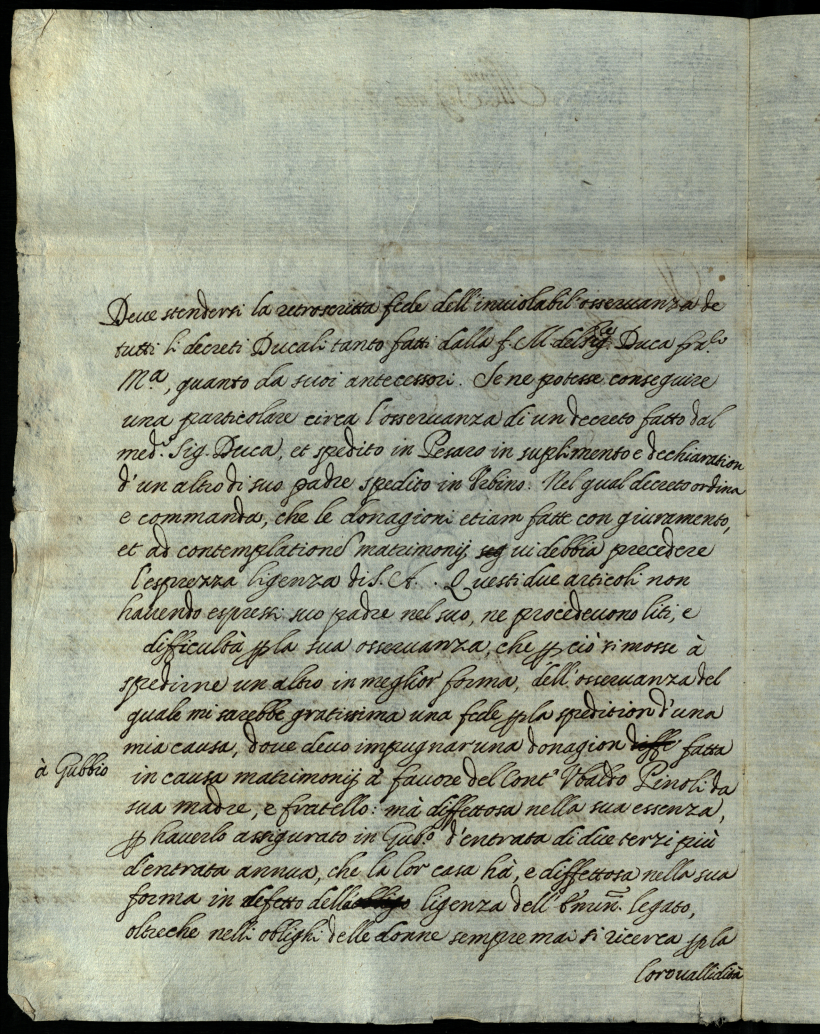 Deue stendersi la retroscritta fede dell'inuiolabil' osseruanza de
tutti li decreti Ducali tanto fatti dalla f. M. del Sig.re Duca fra.co
M.a, quanto da suoi antecessori. Se ne potesse conseguire
una particolare circa l'osseruanza di un decreto fatto dal
med.o Sig. Duca, et spedito in Pesaro in suplimento e dechiaration
d'un altro di suo padre spedito in Vrbino. Nel qual decreto ordina
e commanda, che le donagioni etiam fatte con giuramento,
et ad contemplationem matrimonij ui debbia precedere
l'esprezza ligenza di S. A. . Questi due articoli non
hauendo espressi suo padre nel suo, ne procedeuono liti, e
difficultà p la sua osseruanza, che p ciò si mosse à
spedirne un altro in meglior forma, dell'osseruanza del
quale mi sarebbe gratissima una fede p la spedition d'una
mia causa, doue deuo impugnar una donagion fatta
à Gubbio
in causa matrimonij à fauore del Cont.e Vbaldo Pinoli da
sua madre, e fratello: mà diffettosa nella sua essenza,
p hauerlo assigurato in Gub.o d'entrata di dice terzi più
d'entrata annua, che la lor casa hà, e diffettosa nella sua
forma in defetto della ligenza dell' Emin. legato,
oltreche nelli oblighi delle donne sempre mai si ricerca p la
loro uallidità